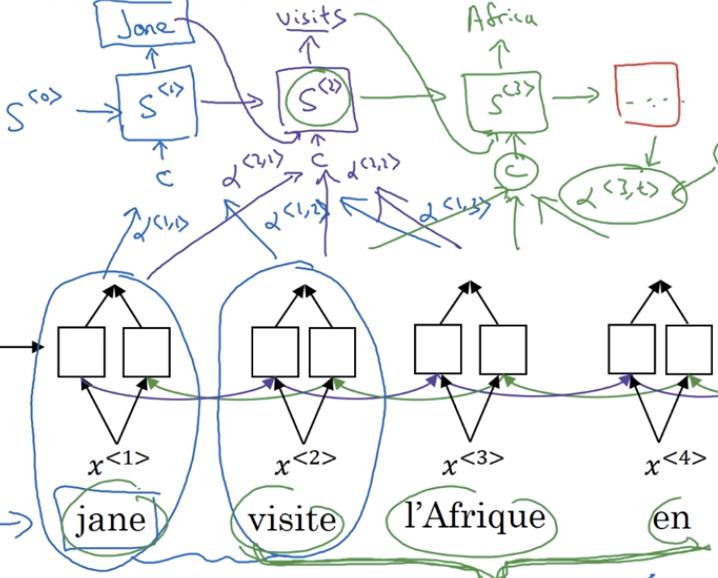 Jane visits Africa
S<0> S<1> S<2> S<3> ...
c α<2,1> c α<2,2> c α<3,t>
α<1,1> α<1,2> α<1,3>
x<1> x<2> x<3> x<4>
jane visite l'Afrique en